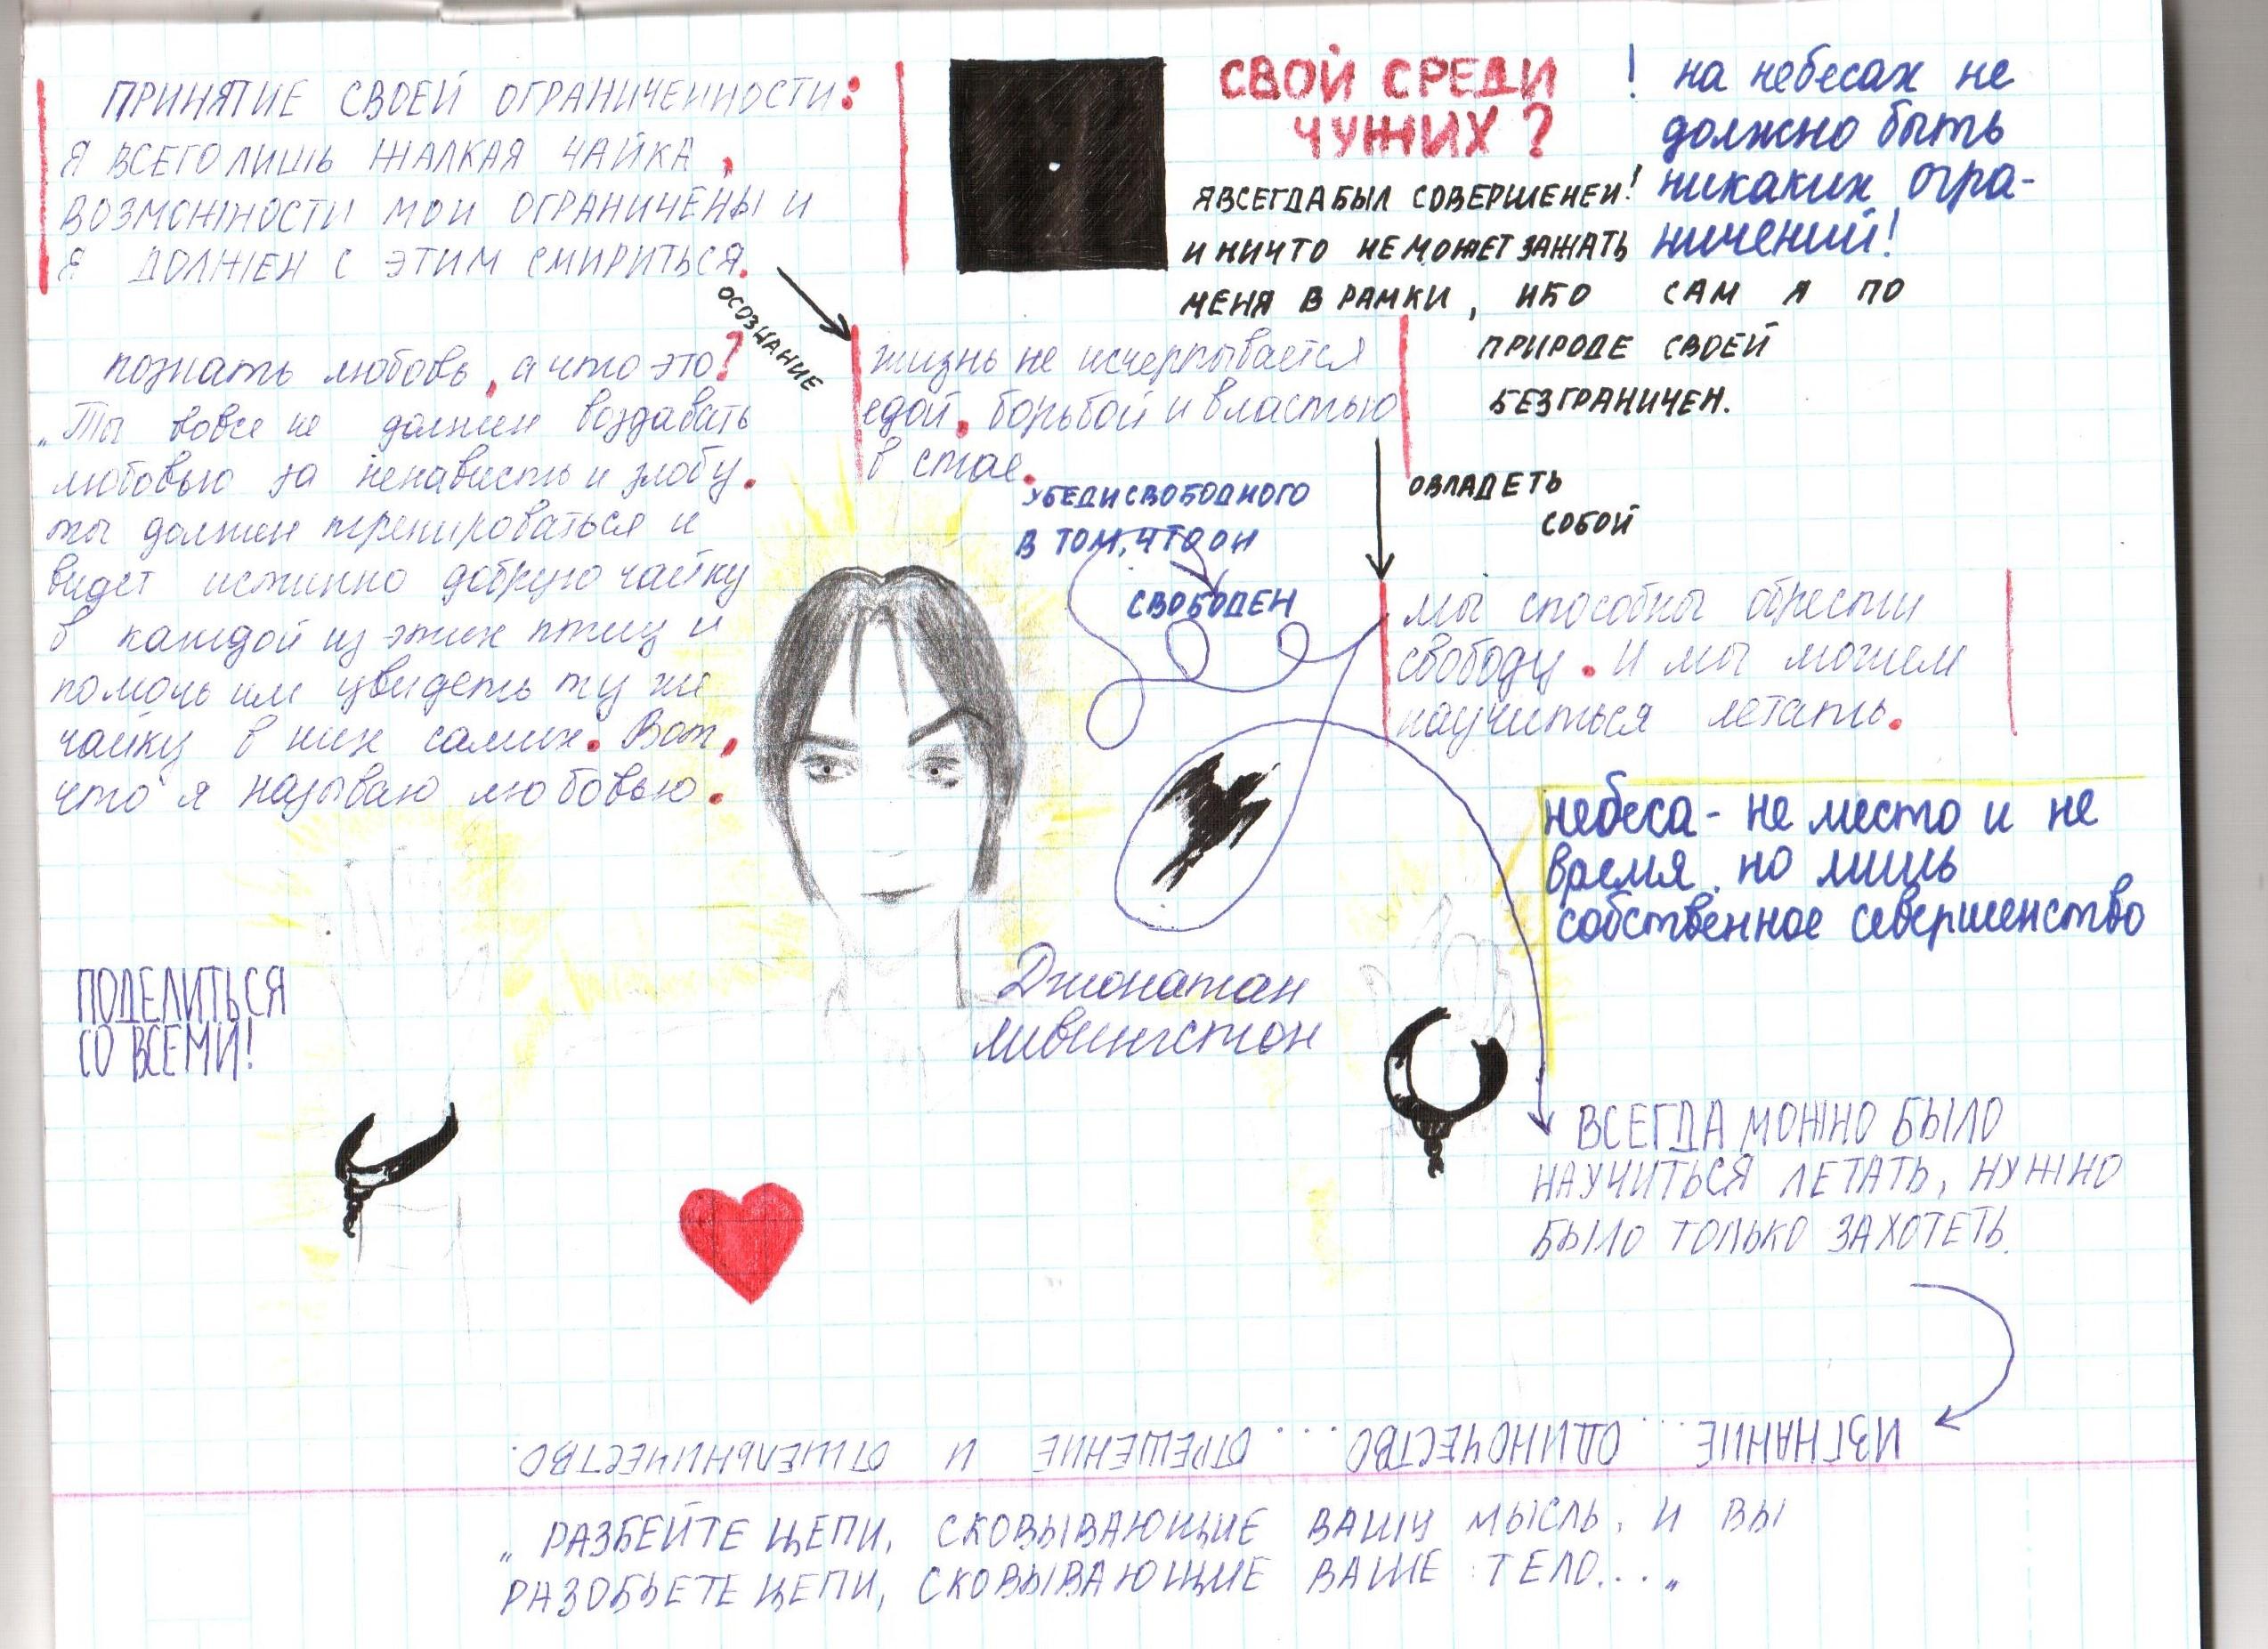 ПРИНЯТИЕ СВОЕЙ ОГРАНИЧЕННОСТИ:
Я ВСЕГО ЛИШЬ ЖАЛКАЯ ЧАЙКА,
ВОЗМОЖНОСТИ МОИ ОГРАНИЧЕНЫ И
Я ДОЛЖЕН С ЭТИМ СМИРИТЬСЯ.
ОСОЗНАНИЕ
СВОЙ СРЕДИ
ЧУЖИХ?
! на небесах не
должно быть
никаких огра-
ничений!
Я ВСЕГДА БЫЛ СОВЕРШЕНЕН!
И НИЧТО НЕ МОЖЕТ ЗАЖАТЬ
МЕНЯ В РАМКИ, ИБО САМ Я ПО
ПРИРОДЕ СВОЕЙ
БЕЗГРАНИЧЕН.
познать любовь, а что это?
„Ты вовсе не должен воздавать
любовью за ненависть и злобу.
ты должен тренироваться и
видет истинно добрую чайку
в каждой из этих птиц и
помочь им увидеть ту же
чайку в них самих. Вот,
что я называю любовью.
жизнь не исчерпывается
едой, борьбой и властью
в стае.
УБЕДИ СВОБОДНОГО
В ТОМ, ЧТО ОН
СВОБОДЕН
ОВЛАДЕТЬ
СОБОЙ
мы способны обрести
свободу. И мы можем
научиться летать.
небеса - не место и не
время, но лишь
собственное совершенство
Джонатан
ливингстон
ПОДЕЛИТЬСЯ
СО ВСЕМИ!
ВСЕГДА МОЖНО БЫЛО
НАУЧИТЬСЯ ЛЕТАТЬ, НУЖНО
БЫЛО ТОЛЬКО ЗАХОТЕТЬ.
ИЗГНАНИЕ... ОДИНОЧЕСТВО.... ОТРЕШЕНИЕ И ОТШЕЛЬНИЧЕСТВО.
„РАЗБЕЙТЕ ЦЕПИ, СКОВЫВАЮЩИЕ ВАШУ МЫСЛЬ, И ВЫ
РАЗОБЬЕТЕ ЦЕПИ, СКОВЫВАЮЩИЕ ВАШЕ ТЕЛО...„